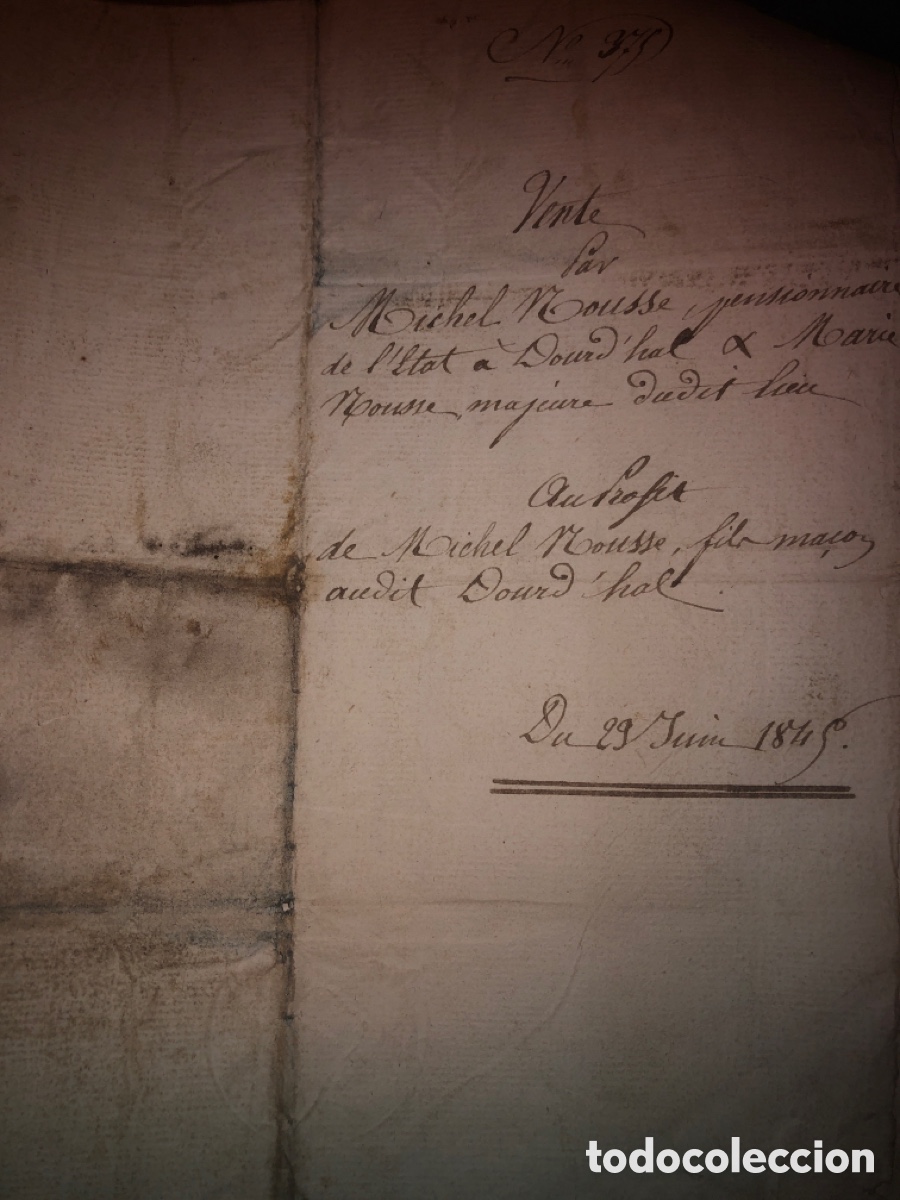 No 375
Vente
Par
Michel Nousse, pensionnaire
de l'Etat à Dourd'hal & Marie
Nousse, majeure dudit lieu
Au Profit
de Michel Nousse, fils maçon
audit Dourd'hal.
Du 29 Juin 1845.
todocoleccion